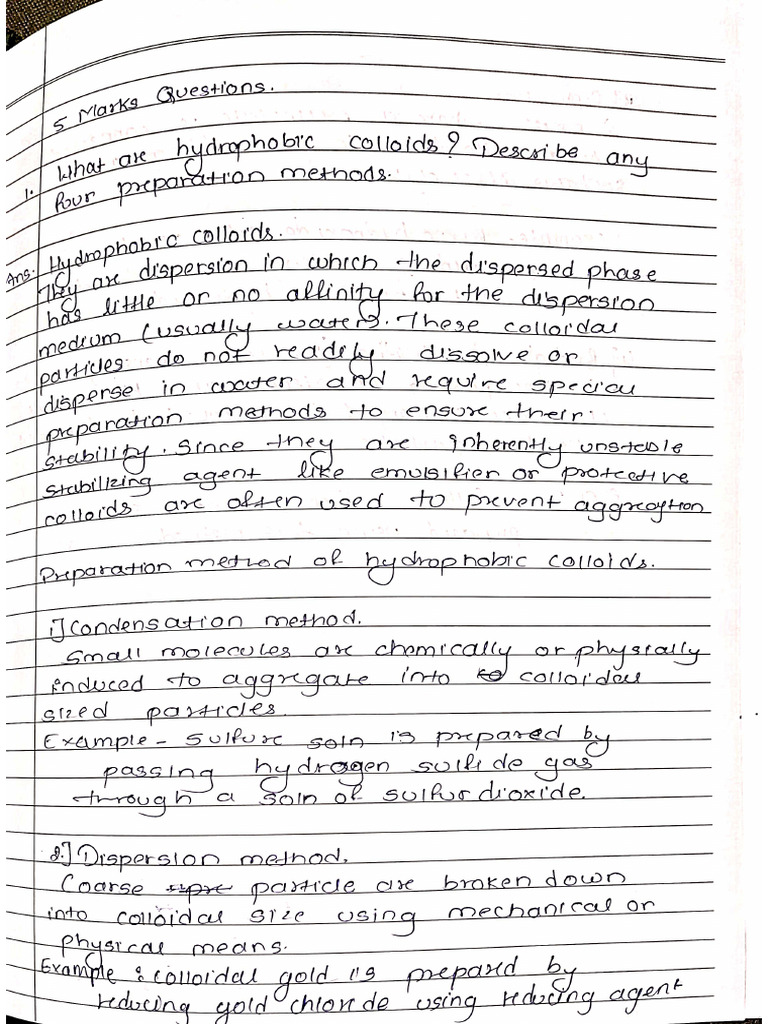 5 Marks Questions.
1. What are hydrophobic colloids? Describe any
four preparation methods.
Ans. Hydrophobic colloids.
They are dispersion in which the dispersed phase
has little or no affinity for the dispersion
medium (usually water). These colloidal
particles do not readily dissolve or
disperse in water and require special
preparation methods to ensure their
stability. Since they are inherently unstable
stabilizing agent like emulsifier or protective
colloids are often used to prevent aggregation
Preparation method of hydrophobic colloids.
1] Condensation method.
Small molecules are chemically or physially
induced to aggregate into colloidal
sized particles.
Example - Sulfure soln is prepared by
passing hydrogen sulfide gas
through a soln of sulfur dioxide.
2.] Dispersion method.
Coarse particle are broken down
into colloidal size using mechanical or
physical means.
Example : colloidal gold is prepared by
reducing gold chloride using reducing agent